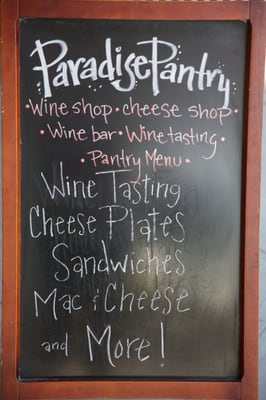 Paradise Pantry
•Wine shop•cheese shop•
•Wine bar•Wine tasting•
•Pantry Menu•
Wine Tasting
Cheese Plates
Sandwiches
Mac & Cheese
and More!